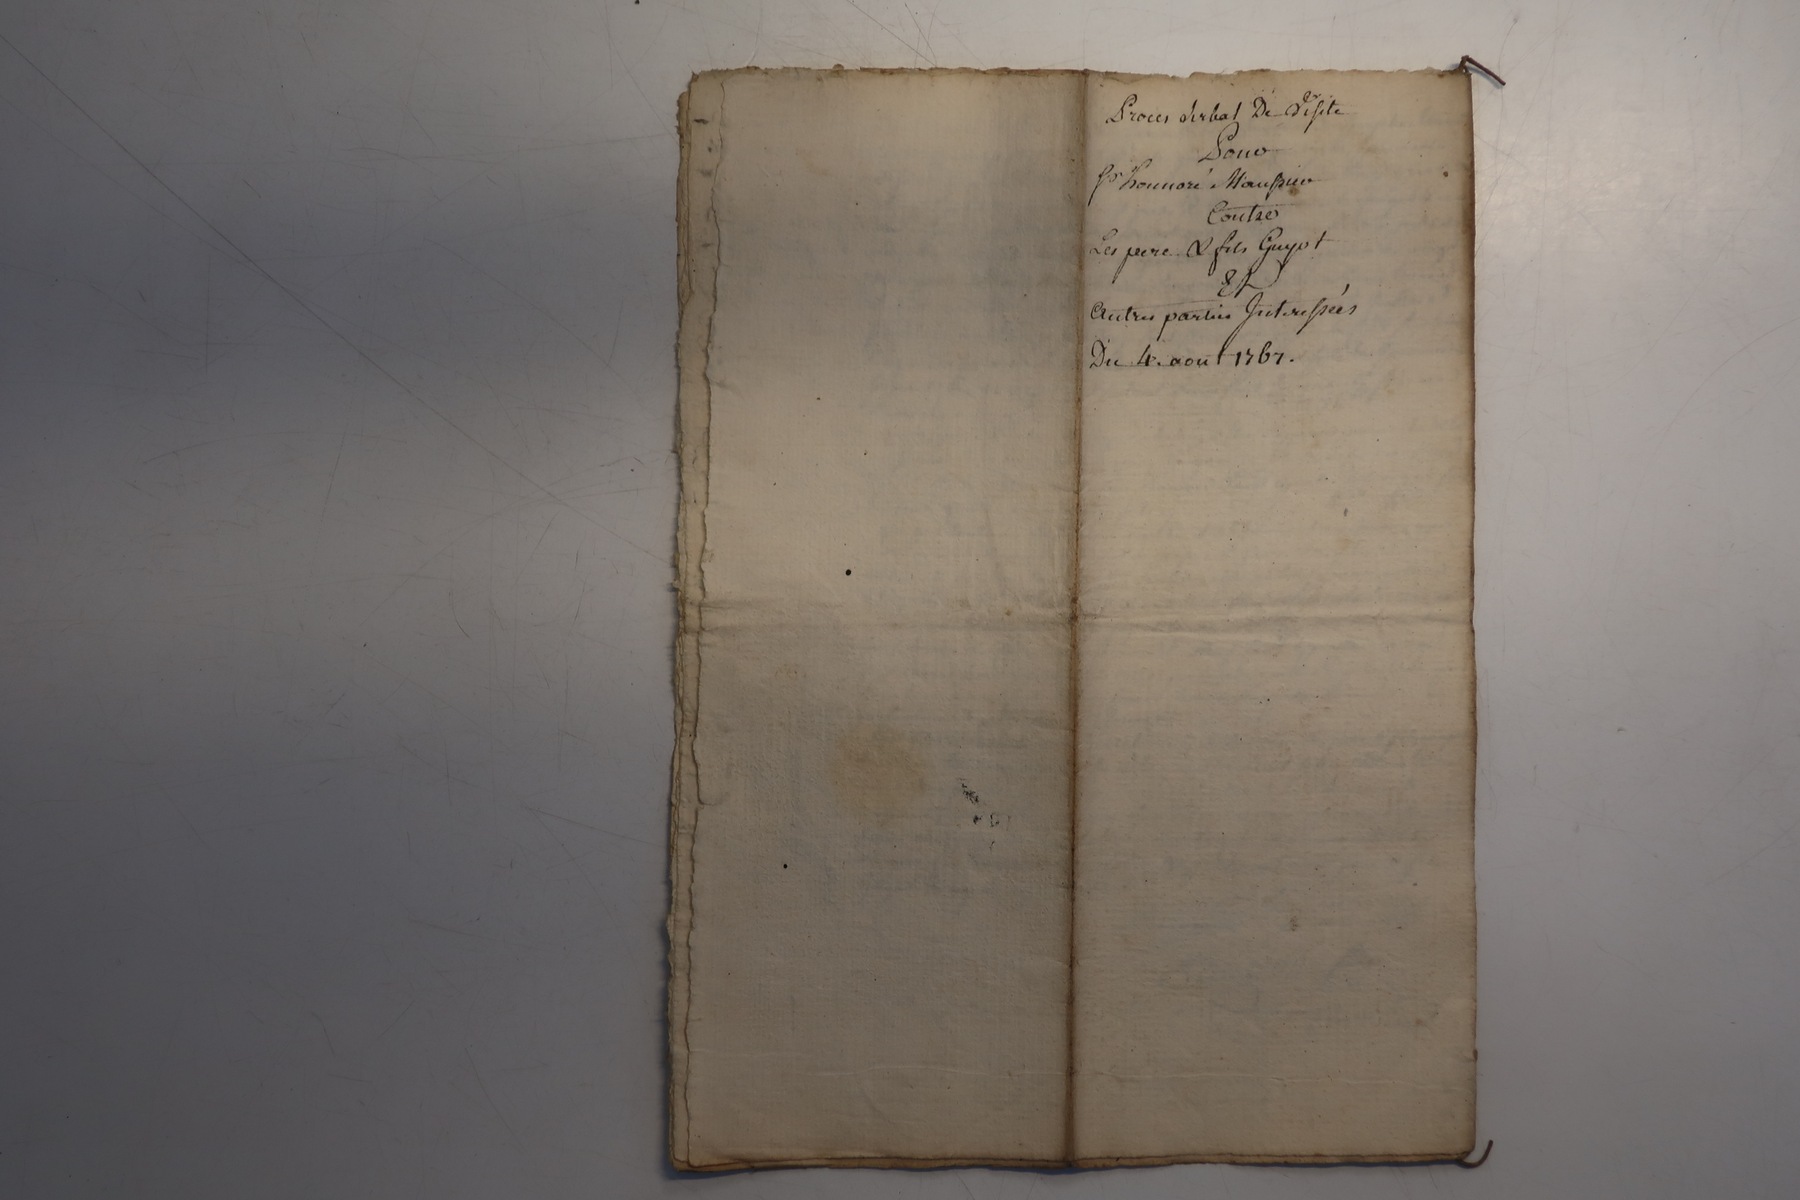 Procés verbal De Visite
Pour
Sr. honnoré Maussier
Contre
Les pere & fils Guyot
Et
Autres parties Interessées
Du 4. aout 1767.